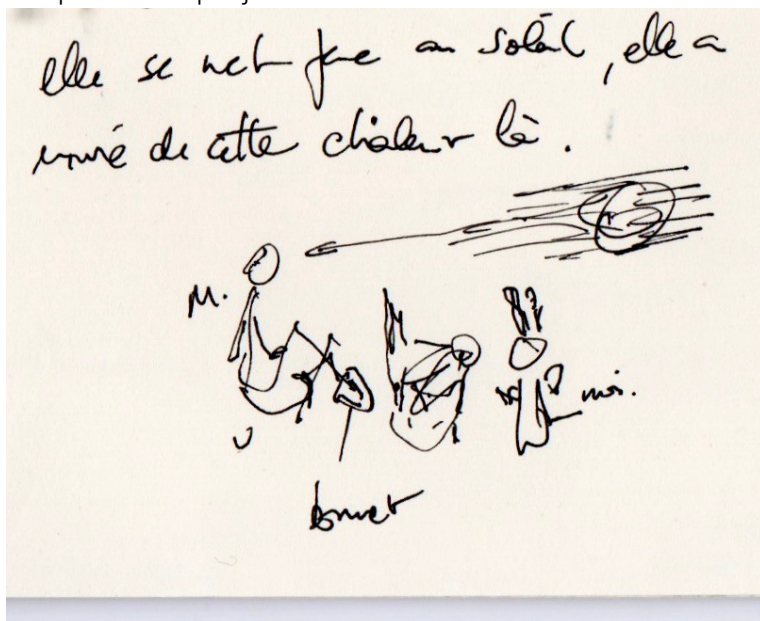 elle se met face au soleil, elle a
envie de cette chaleur là.
M.
moi.
bonnet